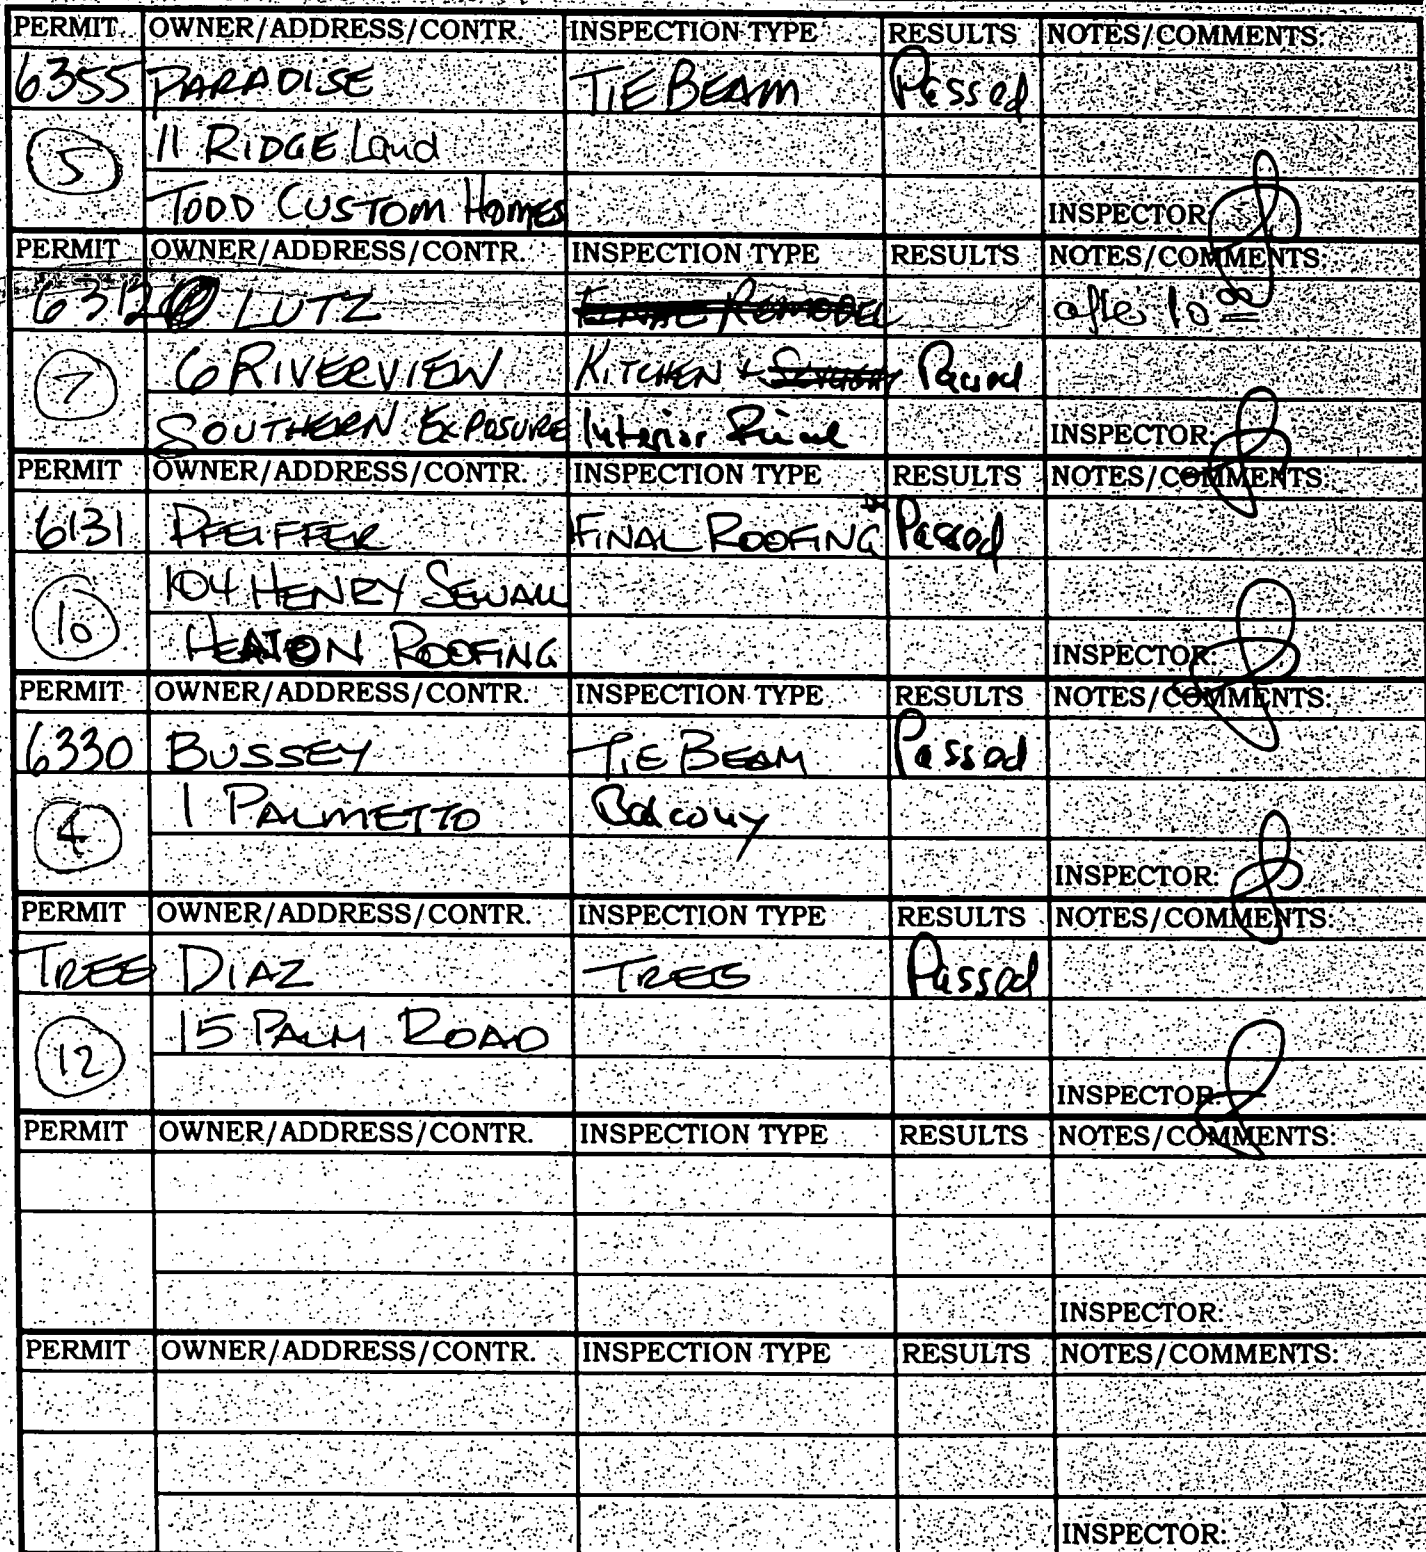 PERMIT OWNER/ADDRESS/CONTR. INSPECTION TYPE RESULTS NOTES/COMMENTS:
6355 PARADISE TIE BEAM Passed
5 11 RIDGELand
TODD CUSTOM HOMES INSPECTOR:
PERMIT OWNER/ADDRESS/CONTR. INSPECTION TYPE RESULTS NOTES/COMMENTS:
6312 LUTZ REMODEL after 10 00
7 6 RIVERVIEW KITCHEN + Passed
SOUTHERN EXPOSURE Interior Final INSPECTOR:
PERMIT OWNER/ADDRESS/CONTR. INSPECTION TYPE RESULTS NOTES/COMMENTS:
6131 PFEIFFER FINAL ROOFING Passed
10 104 HENRY SEWALL
HEATON ROOFING INSPECTOR:
PERMIT OWNER/ADDRESS/CONTR. INSPECTION TYPE RESULTS NOTES/COMMENTS:
6330 BUSSEY TIE BEAM Passed
4 1 PALMETTO Balcony
INSPECTOR:
PERMIT OWNER/ADDRESS/CONTR. INSPECTION TYPE RESULTS NOTES/COMMENTS:
TREE DIAZ TREES Passed
12 15 PALM ROAD
INSPECTOR:
PERMIT OWNER/ADDRESS/CONTR. INSPECTION TYPE RESULTS NOTES/COMMENTS:
INSPECTOR:
PERMIT OWNER/ADDRESS/CONTR. INSPECTION TYPE RESULTS NOTES/COMMENTS:
INSPECTOR: